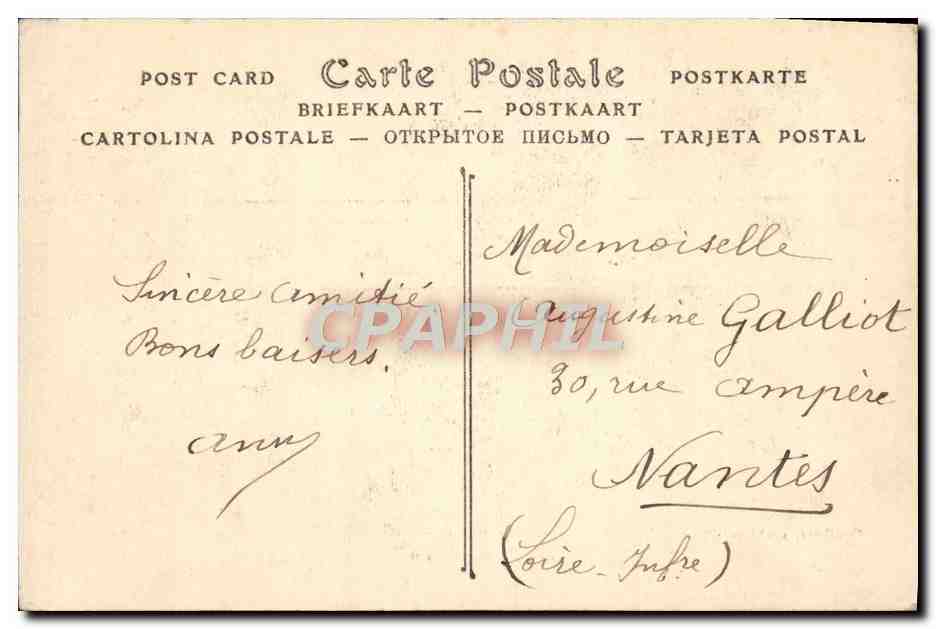 POST CARD Carte Postale POSTKARTE
BRIEFKAART — POSTKAART
CARTOLINA POSTALE — ОТКРЫТОЕ ПИСЬМО — TARJETA POSTAL
Sincère amitié
Bons baisers.
Anny
Mademoiselle
Augustine Galliot
30, rue Ampère
Nantes
(Loire-Infre)
CPAPHIL